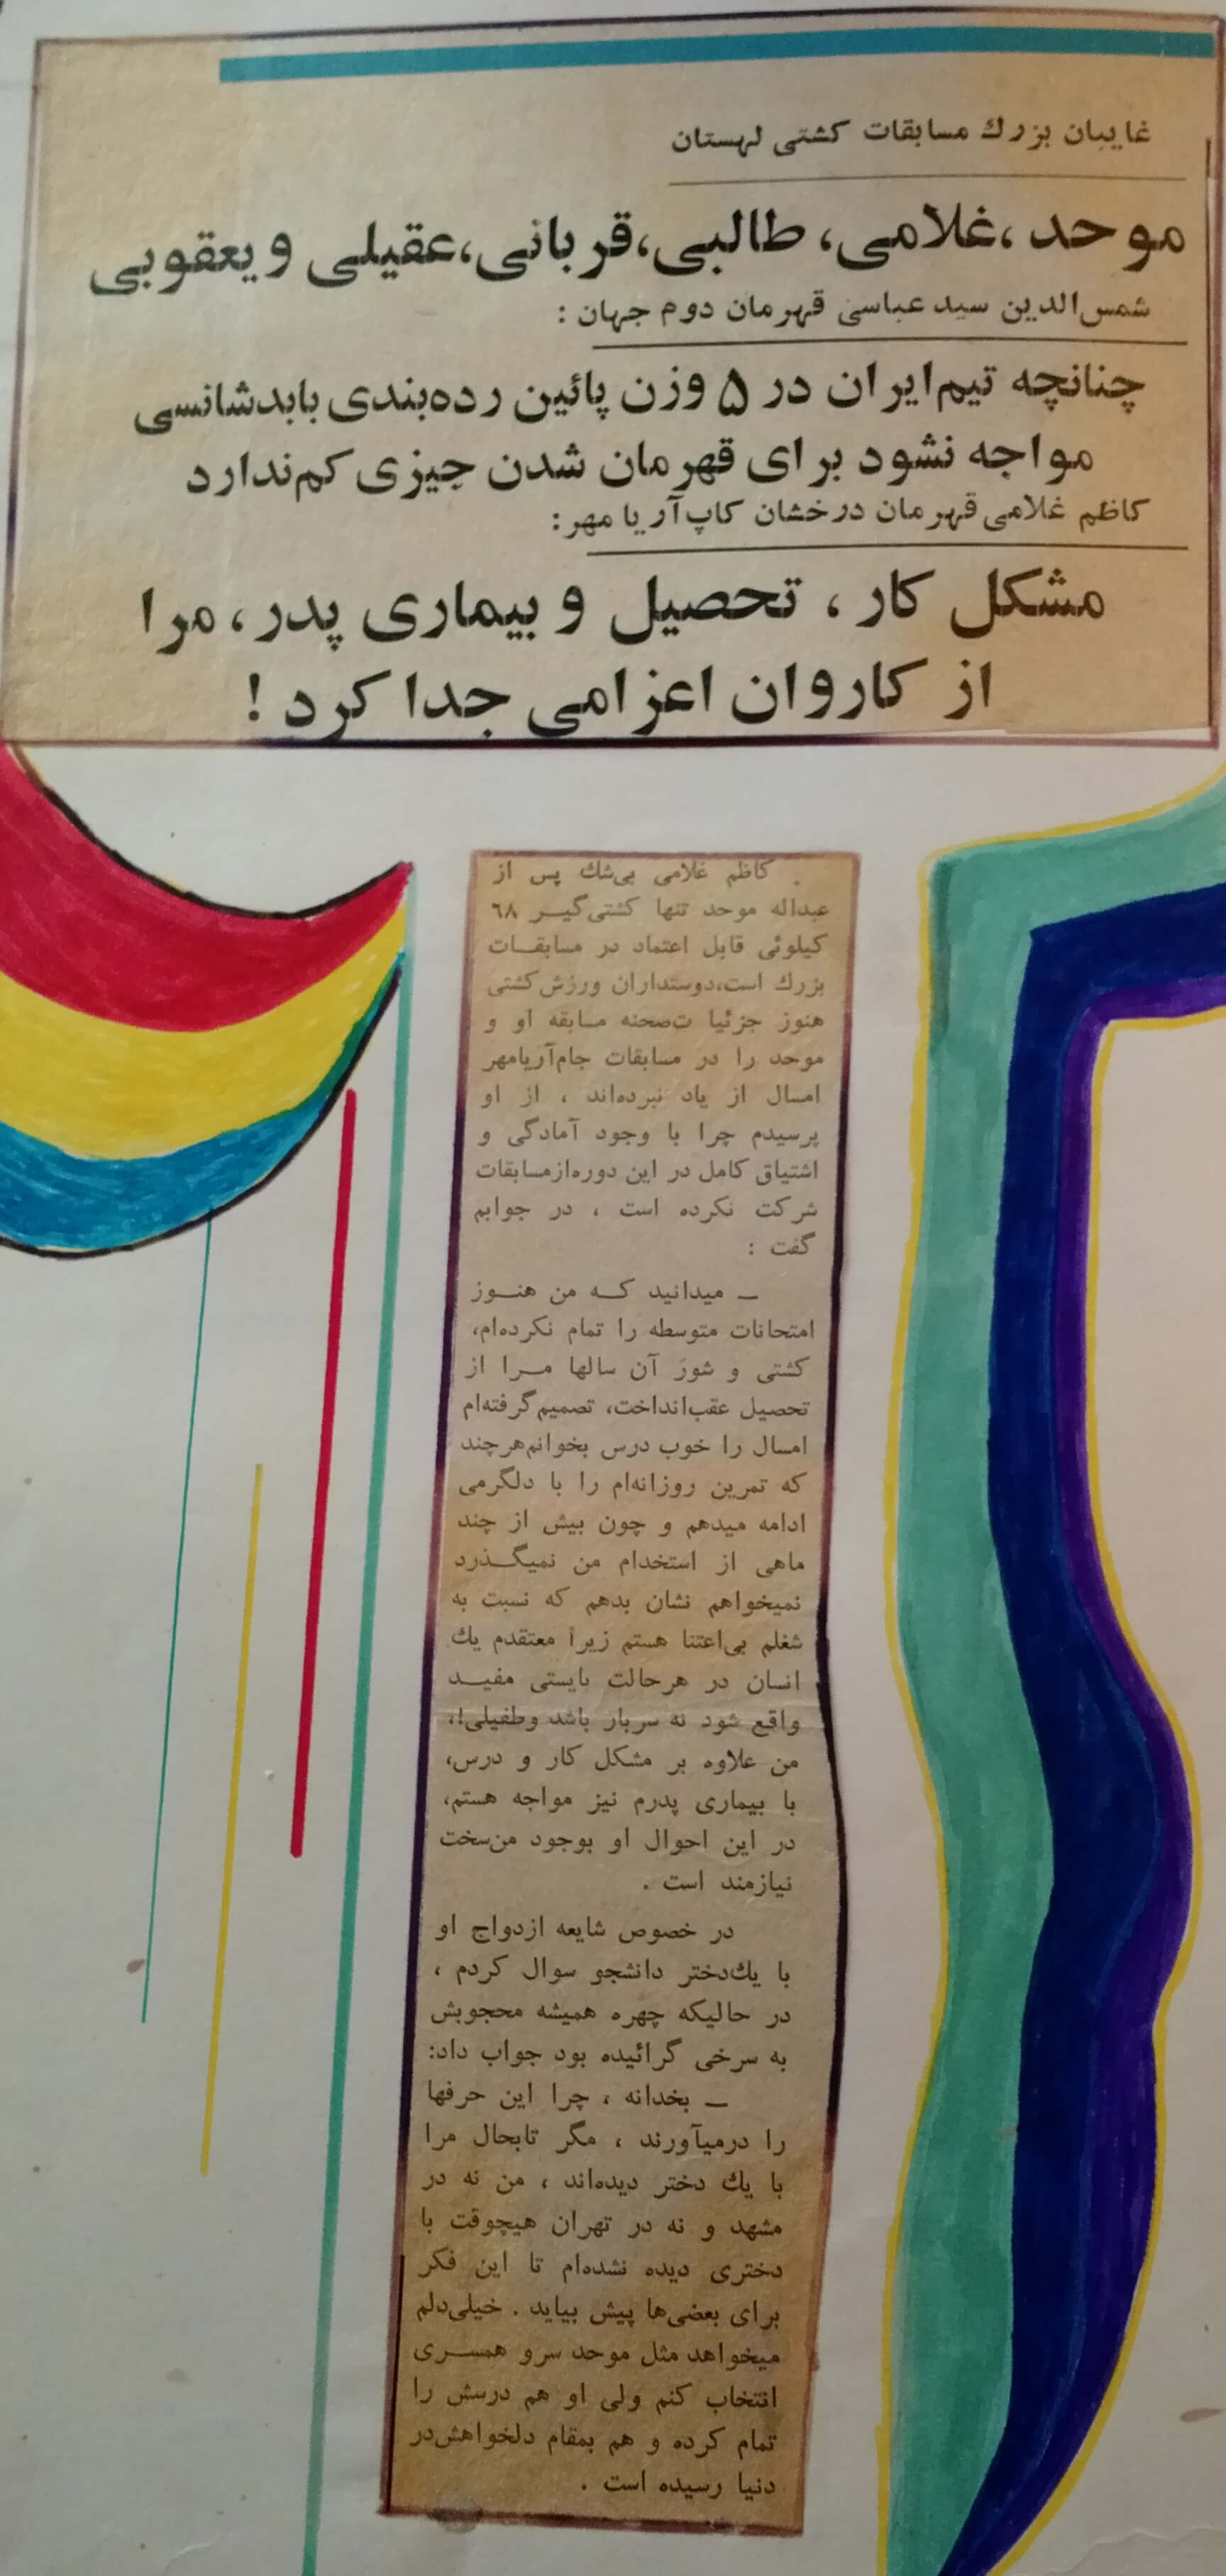 غایبان بزرك مسابقات کشتی لهستان
موحد، غلامی، طالبی، قربانی، عقیلی و یعقوبی
شمس‌الدین سید عباسی قهرمان دوم جهان :
چنانچه تیم‌ایران در ۵ وزن پائین رده‌بندی بابدشانسی
مواجه نشود برای قهرمان شدن چیزی کم‌ندارد
کاظم غلامی قهرمان درخشان کاپ‌آریا مهر:
مشکل کار ، تحصیل و بیماری پدر ، مرا
از کاروان اعزامی جدا کرد !
کاظم غلامی بی‌شك پس از
عبداله موحد تنها کشتی‌گیر ٦٨
کیلوئی قابل اعتماد در مسابقات
بزرك است،دوستداران ورزش‌کشتی
هنوز جزئیا ت‌صحنه مسابقه او و
موحد را در مسابقات جام‌آریامهر
امسال از یاد نبرده‌اند ، از او
پرسیدم چرا با وجود آمادگی و
اشتیاق کامل در این دوره‌ازمسابقات
شرکت نکرده است ، در جوابم
گفت :
ـ میدانید که من هنوز
امتحانات متوسطه را تمام نکرده‌ام،
کشتی و شور آن سالها مرا از
تحصیل عقب‌انداخت، تصمیم‌گرفته‌ام
امسال را خوب درس بخوانم‌هرچند
که تمرین روزانه‌ام را با دلگرمی
ادامه میدهم و چون بیش از چند
ماهی از استخدام من نمیگذرد
نمیخواهم نشان بدهم که نسبت به
شغلم بی‌اعتنا هستم زیرا معتقدم یك
انسان در هرحالت بایستی مفید
واقع شود نه سربار باشد وطفیلی!،
من علاوه بر مشکل کار و درس،
با بیماری پدرم نیز مواجه هستم،
در این احوال او بوجود من‌سخت
نیازمند است .
در خصوص شایعه ازدواج او
با یك‌دختر دانشجو سوال کردم ،
در حالیکه چهره همیشه محجوبش
به سرخی گرائیده بود جواب داد:
ـ بخدانه ، چرا این حرفها
را درمیآورند ، مگر تابحال مرا
با یك دختر دیده‌اند ، من نه در
مشهد و نه در تهران هیچوقت با
دختری دیده نشده‌ام تا این فکر
برای بعضی‌ها پیش بیاید . خیلی‌دلم
میخواهد مثل موحد سرو همسری
انتخاب کنم ولی او هم درسش را
تمام کرده و هم بمقام دلخواهش‌در
دنیا رسیده است .